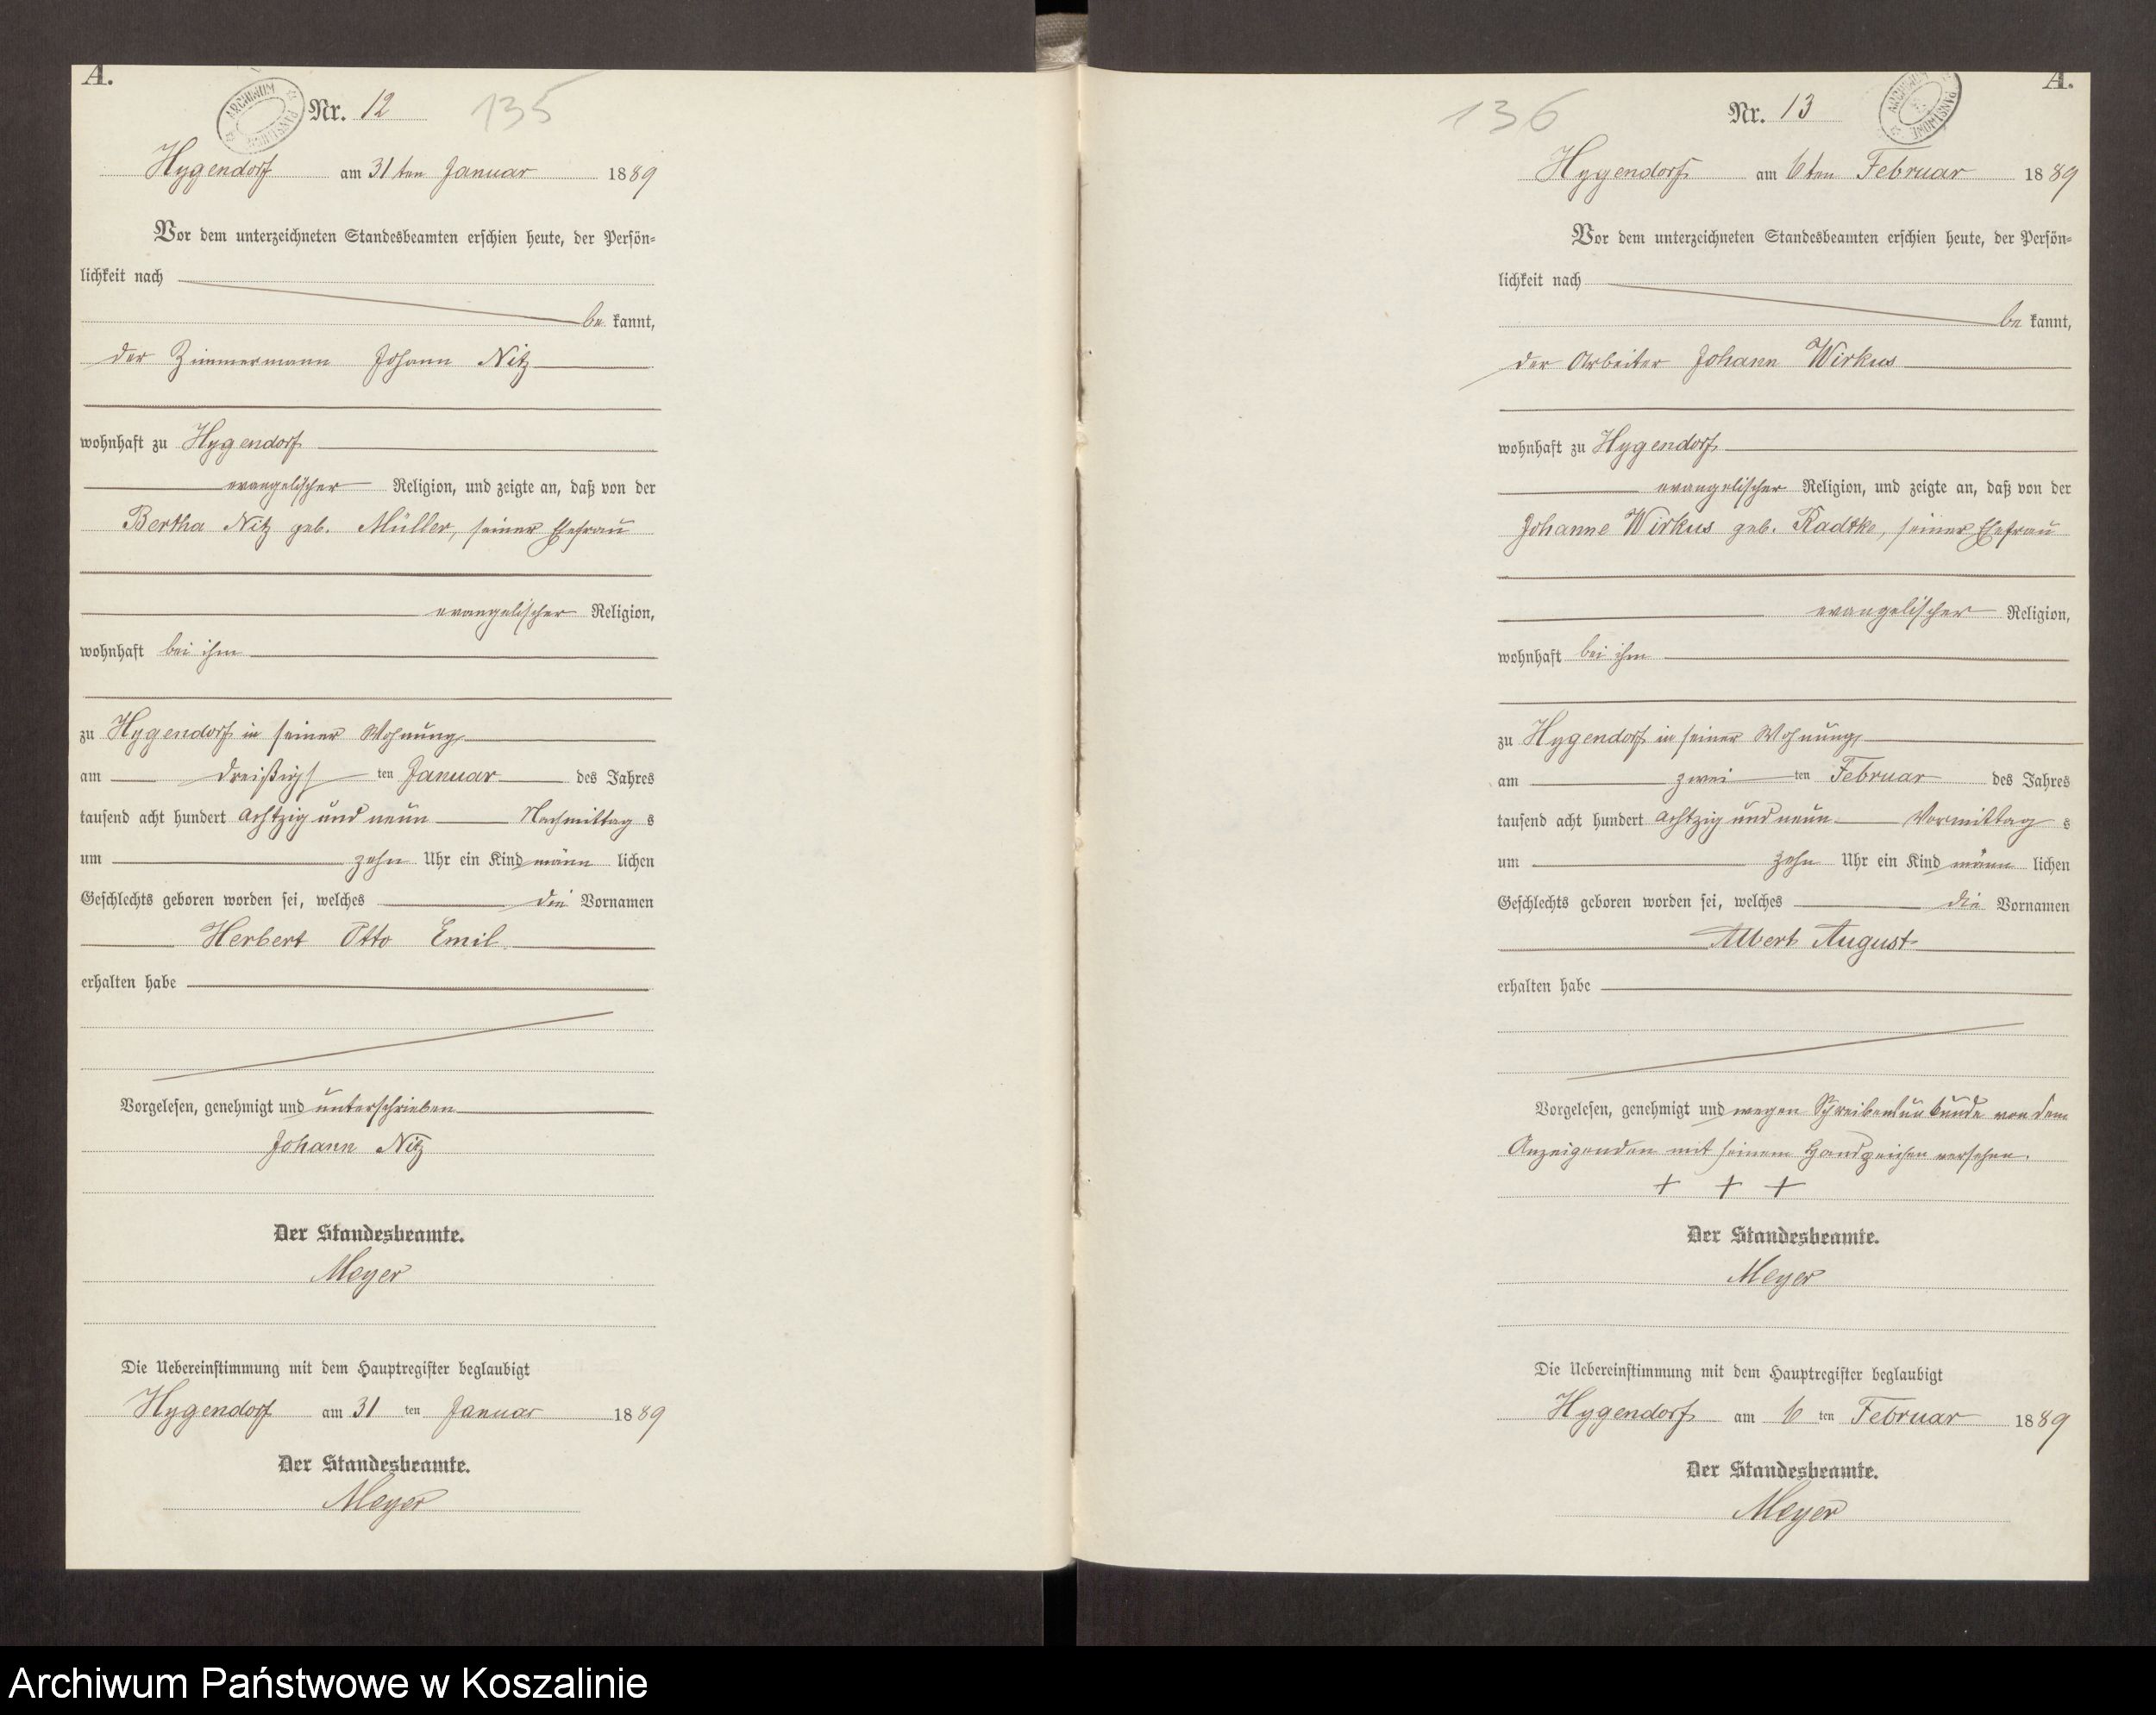 A.
ARCHIWUM PAŃSTWOWE
Nr. 12
135
Hygendorf am 31ten Januar 1889
Vor dem unterzeichneten Standesbeamten erschien heute, der Persön=
lichkeit nach
be kannt,
der Zimmermann Johann Nitz
wohnhaft zu Hygendorf
evangelischer Religion, und zeigte an, daß von der
Bertha Nitz geb. Müller, seiner Ehefrau
evangelischer Religion,
wohnhaft bei ihm
zu Hygendorf in seiner Wohnung
am dreißigs ten Januar des Jahres
tausend acht hundert achtzig und neun Nachmittag s
um zehn Uhr ein Kind männ lichen
Geschlechts geboren worden sei, welches die Vornamen
Herbert Otto Emil
erhalten habe
Vorgelesen, genehmigt und unterschrieben
Johann Nitz
Der Standesbeamte.
Meyer
Die Uebereinstimmung mit dem Hauptregister beglaubigt
Hygendorf am 31 ten Januar 1889
Der Standesbeamte.
Meyer
A.
ARCHIWUM PAŃSTWOWE
136
Nr. 13
Hygendorf am 6ten Februar 1889
Vor dem unterzeichneten Standesbeamten erschien heute, der Persön=
lichkeit nach
be kannt,
der Arbeiter Johann Wirkus
wohnhaft zu Hygendorf
evangelischer Religion, und zeigte an, daß von der
Johanne Wirkus geb. Radtke, seiner Ehefrau
evangelischer Religion,
wohnhaft bei ihm
zu Hygendorf in seiner Wohnung
am zwei ten Februar des Jahres
tausend acht hundert achtzig und neun Vormittag s
um zehn Uhr ein Kind männ lichen
Geschlechts geboren worden sei, welches die Vornamen
Albert August
erhalten habe
Vorgelesen, genehmigt und wegen Schreibensunkunde von dem
Anzeigenden mit seinem Handzeichen versehen.
+ + +
Der Standesbeamte.
Meyer
Die Uebereinstimmung mit dem Hauptregister beglaubigt
Hygendorf am 6 ten Februar 1889
Der Standesbeamte.
Meyer
Archiwum Państwowe w Koszalinie